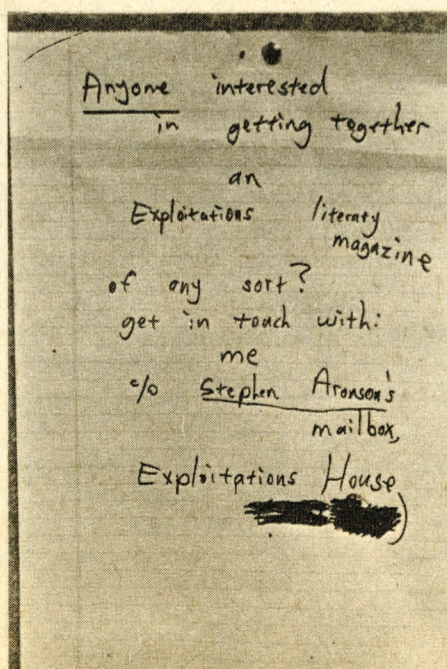 Anyone interested
in getting together
an
Exploitations literary
magazine
of any sort?
get in touch with:
me
c/o Stephen Aronson's
mailbox,
Exploitations House
)